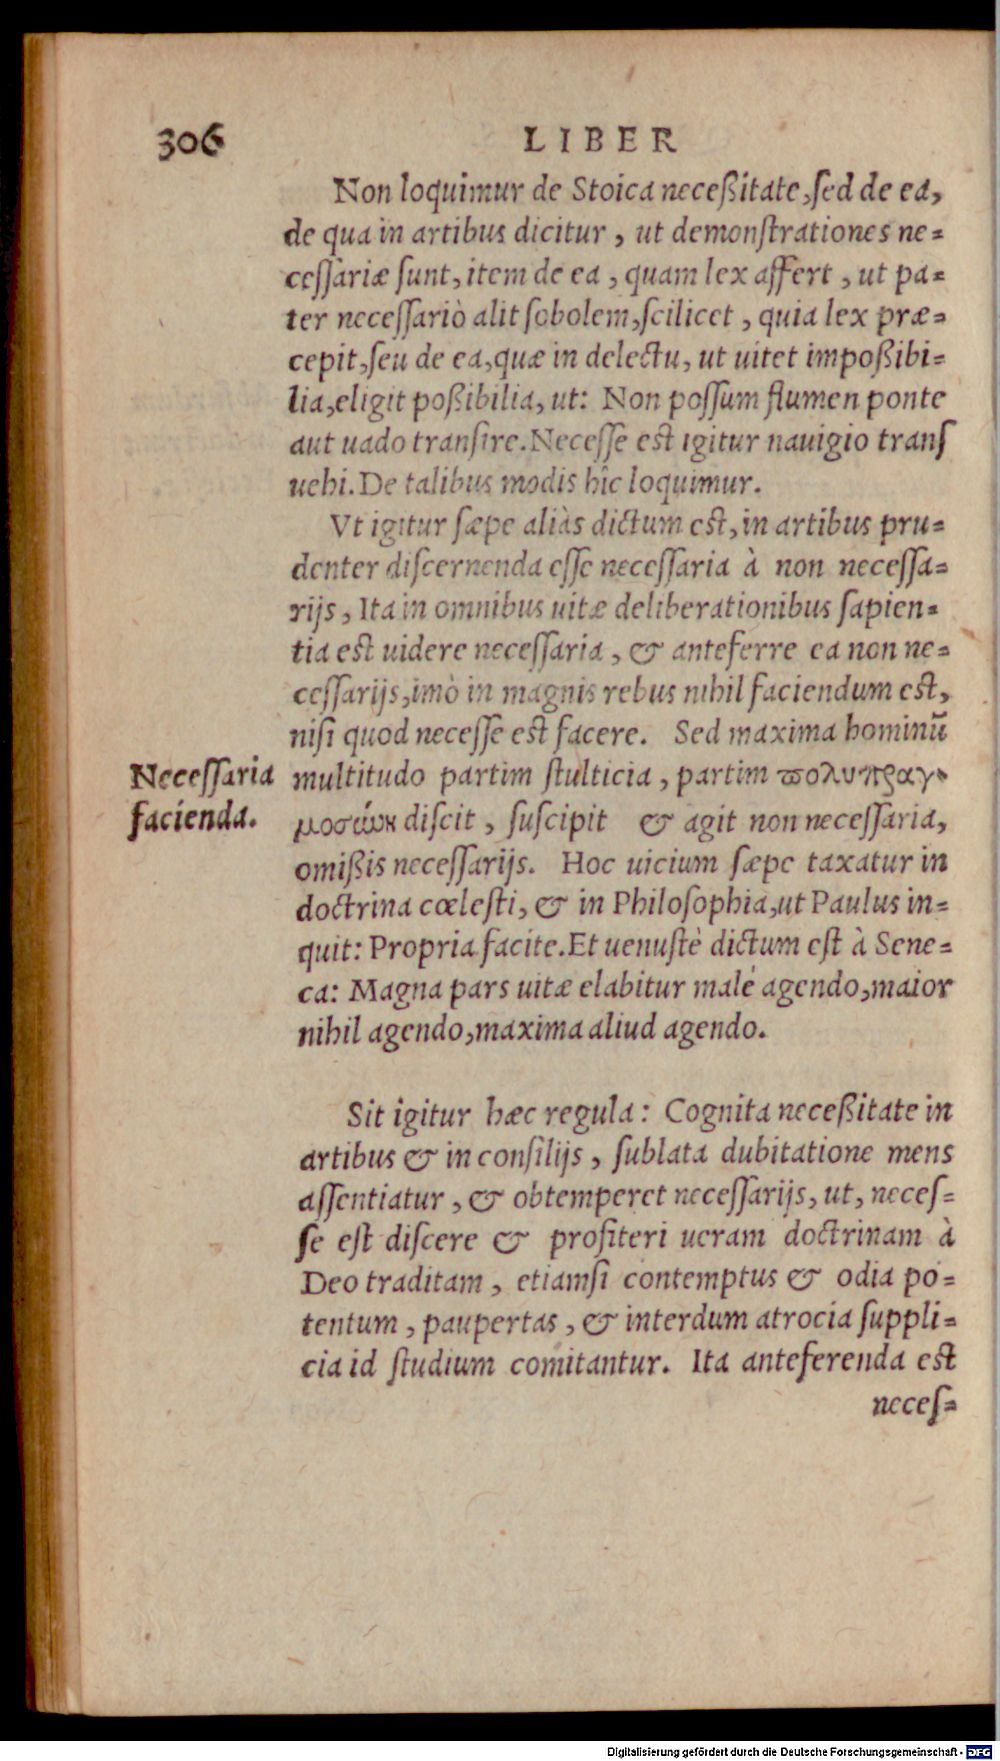 306 LIBER
Non loquimur de Stoica neceßitate, sed de ea,
de qua in artibus dicitur, ut demonstrationes ne=
cessariæ sunt, item de ea, quam lex affert, ut pa=
ter necessariò alit sobolem, scilicet, quia lex præ=
cepit, seu de ea, quæ in delectu, ut uitet impoßibi=
lia, eligit poßibilia, ut: Non possum flumen ponte
aut uado transire. Necesse est igitur nauigio trans
uehi. De talibus modis hîc loquimur.
Vt igitur sæpe aliàs dictum est, in artibus pru=
denter discernenda esse necessaria à non necessa=
rijs, Ita in omnibus uitæ deliberationibus sapien=
tia est uidere necessaria, & anteferre ea non ne=
cessarijs, imò in magnis rebus nihil faciendum est,
nisi quod necesse est facere. Sed maxima hominū
Necessaria
facienda.
multitudo partim stulticia, partim πολυπραγ=
μοσύνη discit, suscipit & agit non necessaria,
omißis necessarijs. Hoc uicium sæpe taxatur in
doctrina cœlesti, & in Philosophia, ut Paulus in=
quit: Propria facite. Et uenustè dictum est à Sene=
ca: Magna pars uitæ elabitur malè agendo, maior
nihil agendo, maxima aliud agendo.
Sit igitur hæc regula: Cognita neceßitate in
artibus & in consilijs, sublata dubitatione mens
assentiatur, & obtemperet necessarijs, ut, neces=
se est discere & profiteri ueram doctrinam à
Deo traditam, etiamsi contemptus & odia po=
tentum, paupertas, & interdum atrocia suppli=
cia id studium comitantur. Ita anteferenda est
neces=
Digitalisierung gefördert durch die Deutsche Forschungsgemeinschaft - DFG